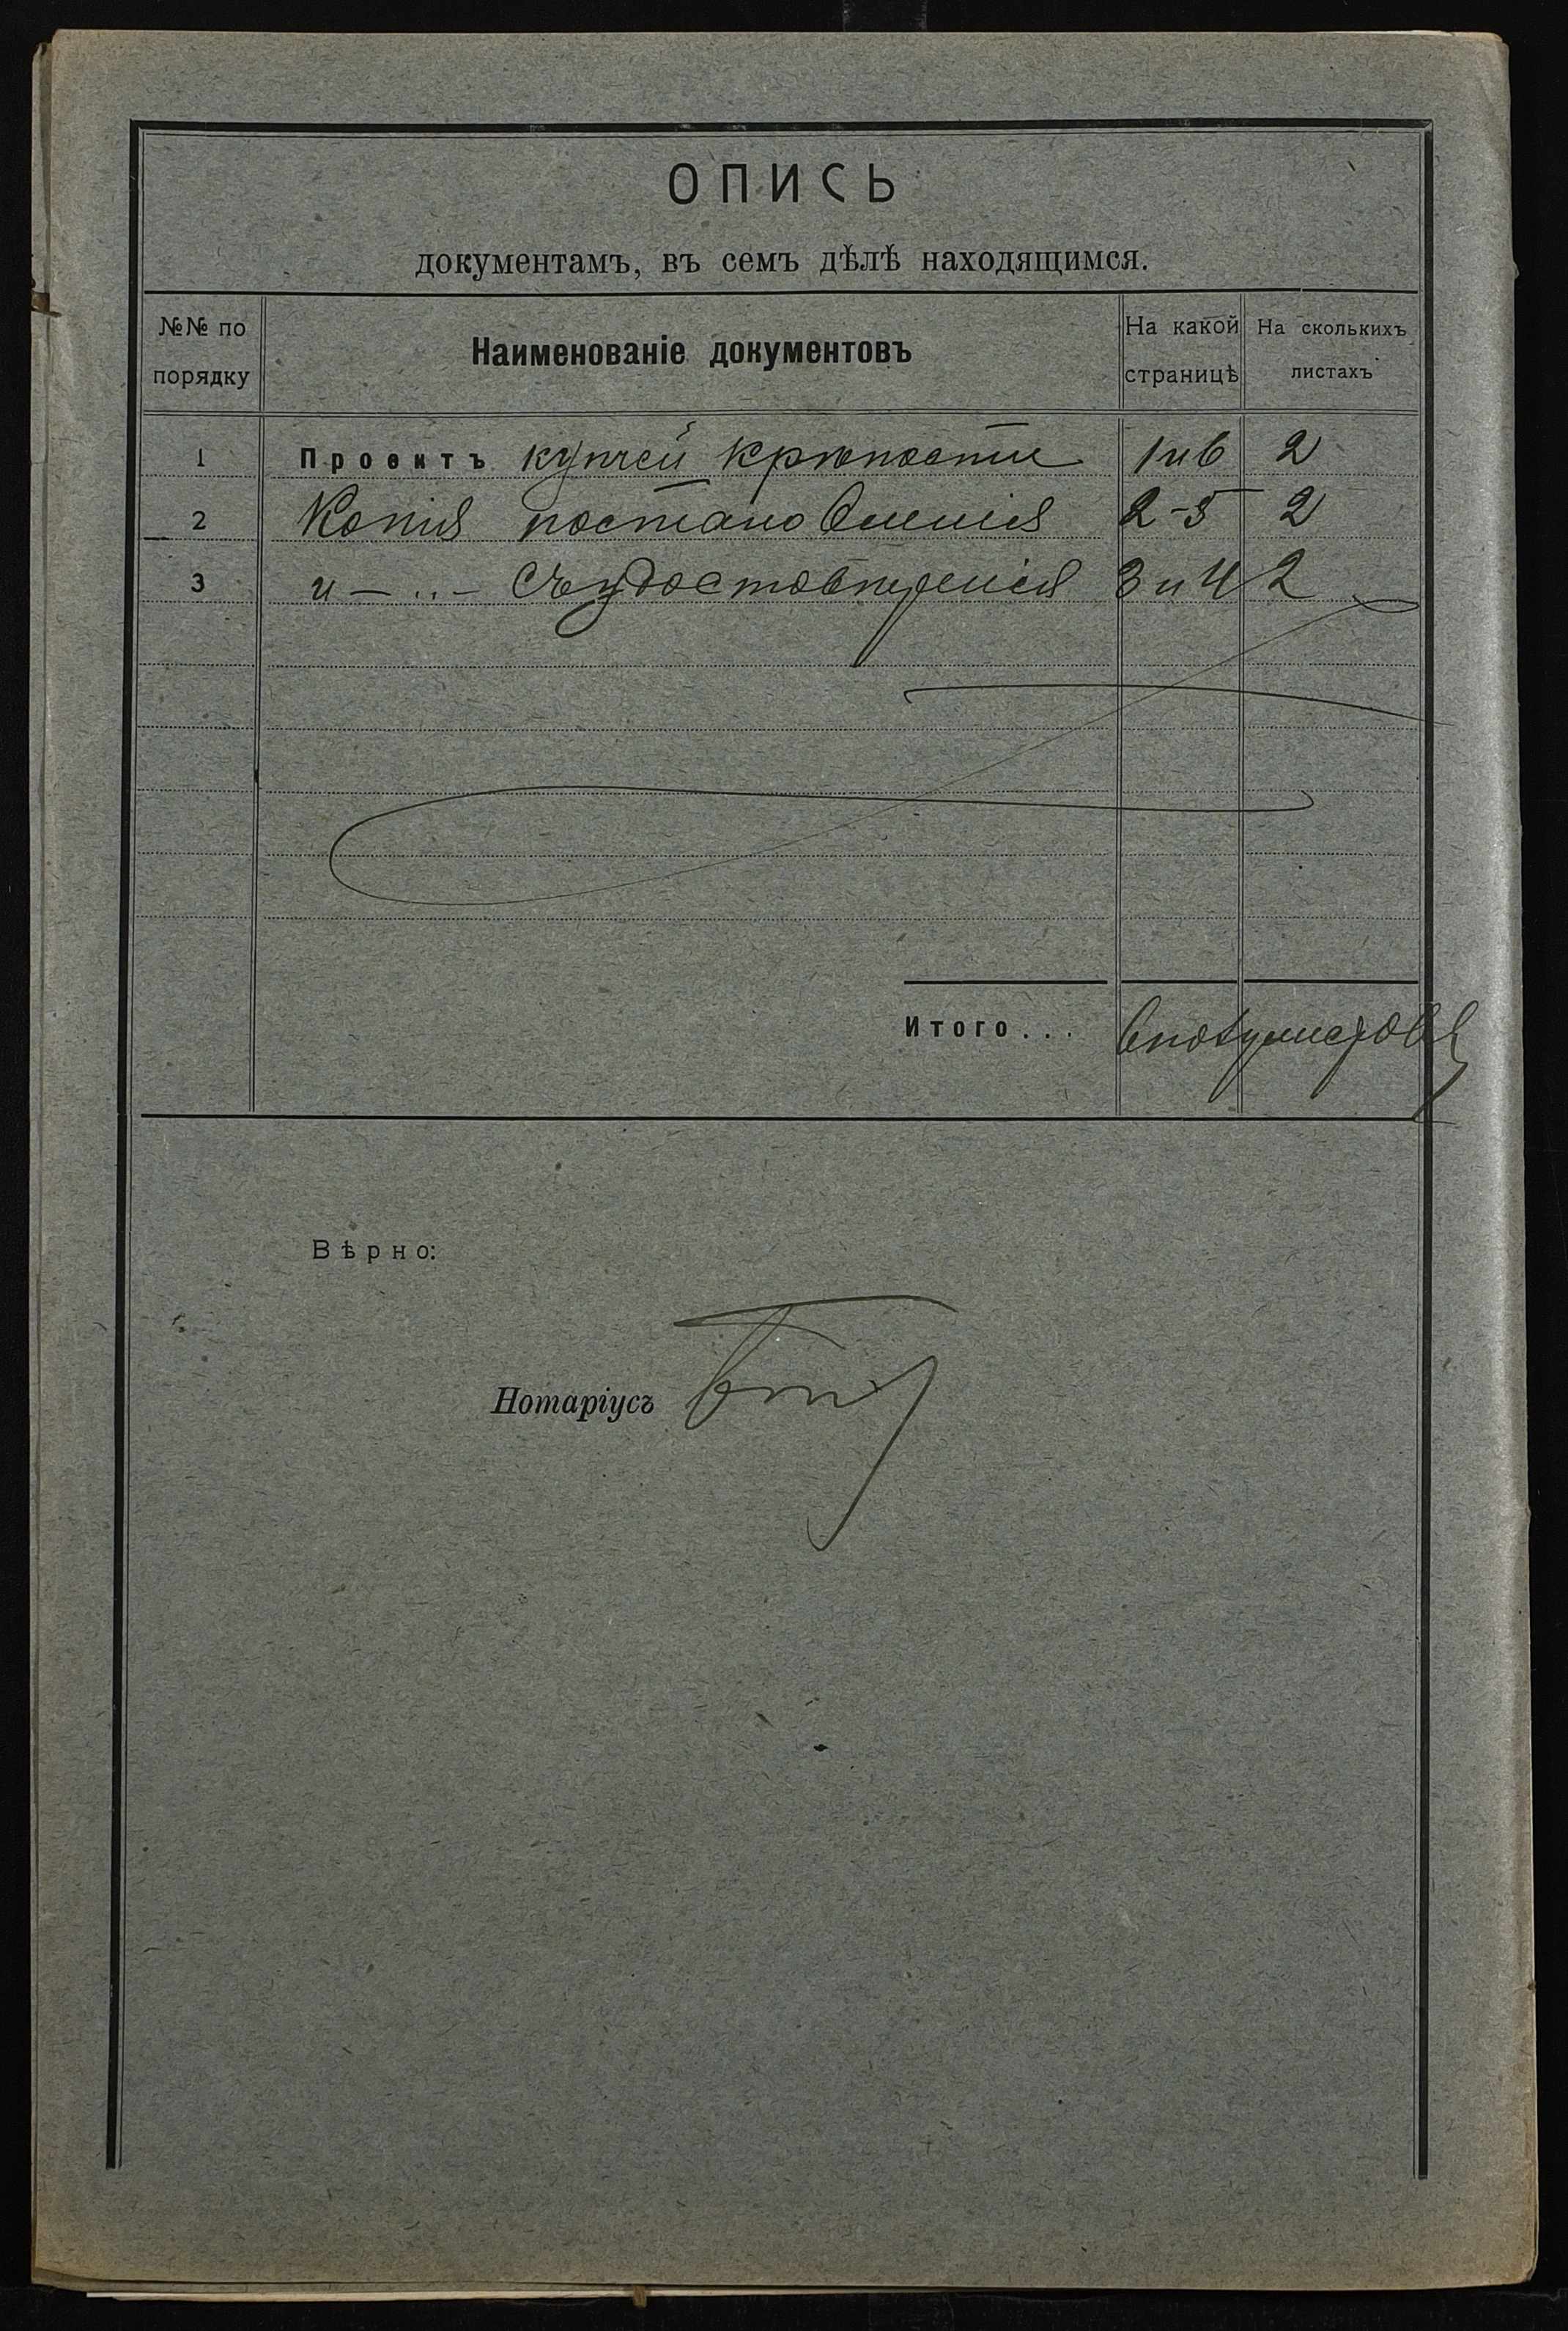 ОПИСЬ
документамъ, въ семъ дѣлѣ находящимся.
№№ по порядку
Наименованіе документовъ
На какой страницѣ
На сколькихъ листахъ
1 Проектъ купчей крѣпости 1 и 6 2
2 Копія постановленія 2-5 2
3 и — „ — съ удостовѣренія 3 и 4 2
Итого...
Вѣрно:
Нотаріусъ